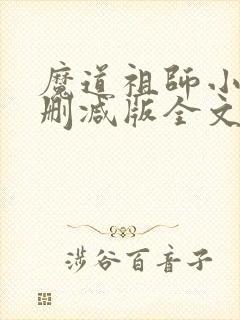 魔道祖師小
删减版全文
涉谷百音子